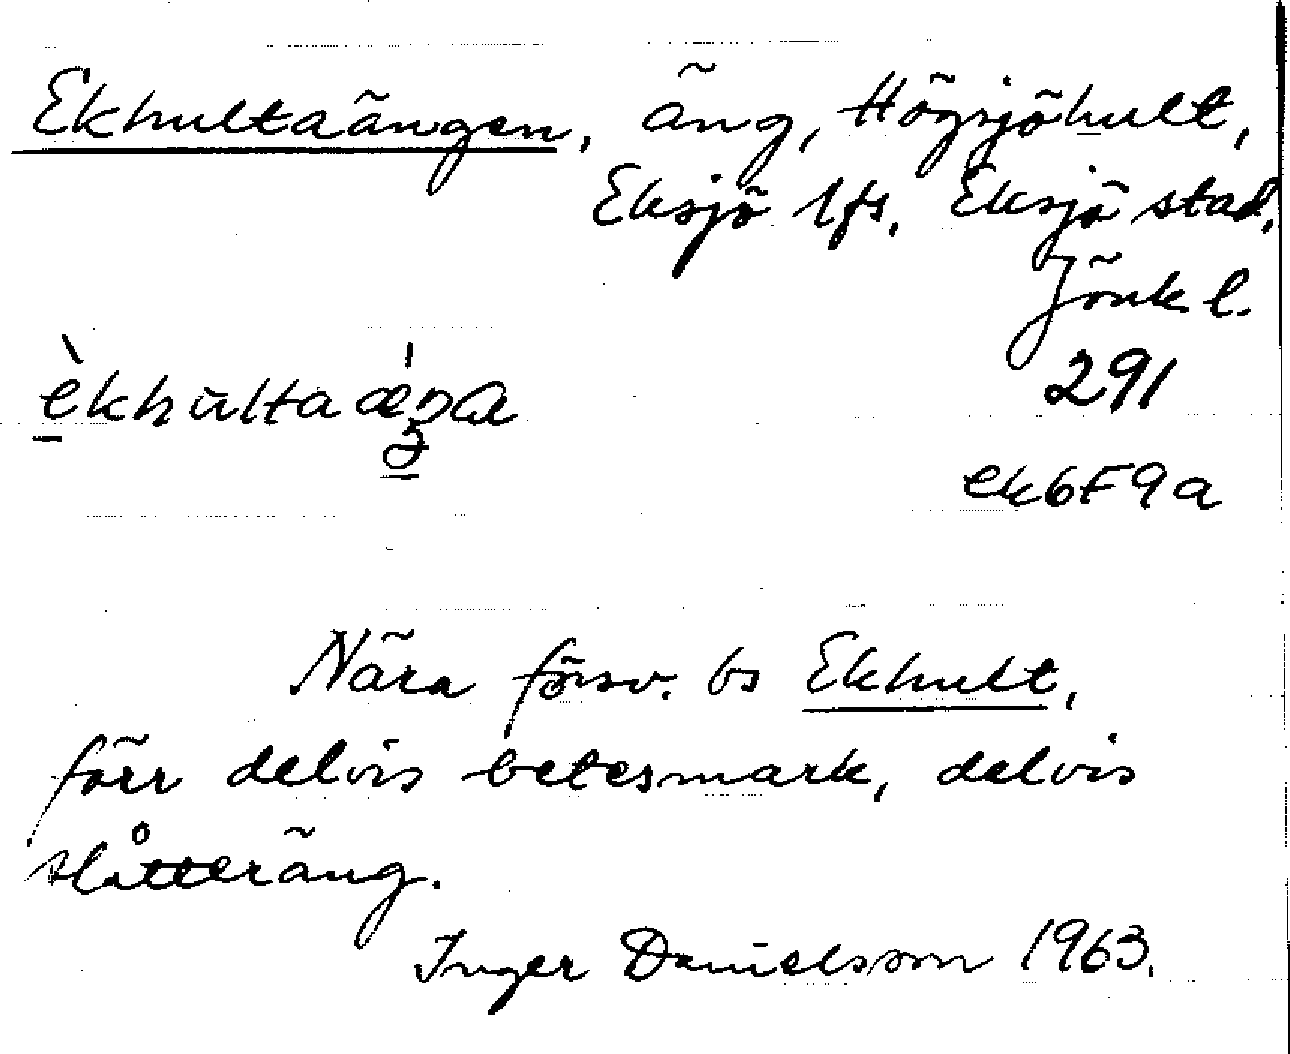 Ekhultaängen, äng, Högsjöhult,
Eksjö lfs, Eksjö stad,
Jönk. l.
291
ek6F9a
Nära försv. bs Ekhult,
förr delvis betesmark, delvis
slåtteräng.
Inger Danielsson 1963.